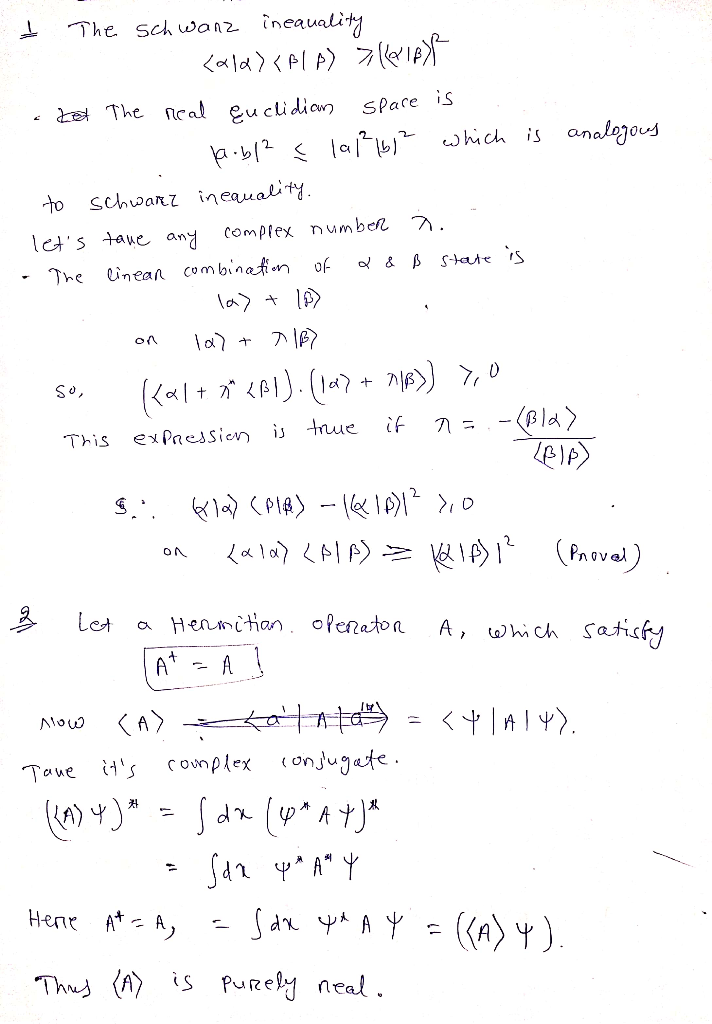 1 The schwarz inequality
<α|α><β|β> ≥ |<α|β>|²
The real Euclidian space is
|a·b|² ≤ |a|²|b|² which is analogous
to schwarz inequality.
let's take any complex number λ.
- The linear combination of α & β state is
|α> + |β>
or |α> + λ|β>
So, (<α| + λ* <β|).(|α> + λ|β>) ≥, 0
This expression is true if λ = -<β|α> / <β|β>
S∴ <α|α> <β|β> - |<α|β>|² ≥, 0
or <α|α> <β|β> ≥ |<α|β>|² (Proved)
2 Let a Hermitian operator A, which satisfy
A† = A
Now <A> = <ψ|A|ψ>.
Take it's complex conjugate.
(<A>ψ)* = ∫dx (ψ* A ψ)*
= ∫dx ψ* A* ψ
Here A† = A, = ∫dx ψ* A ψ = (<A>ψ).
Thus <A> is purely real.